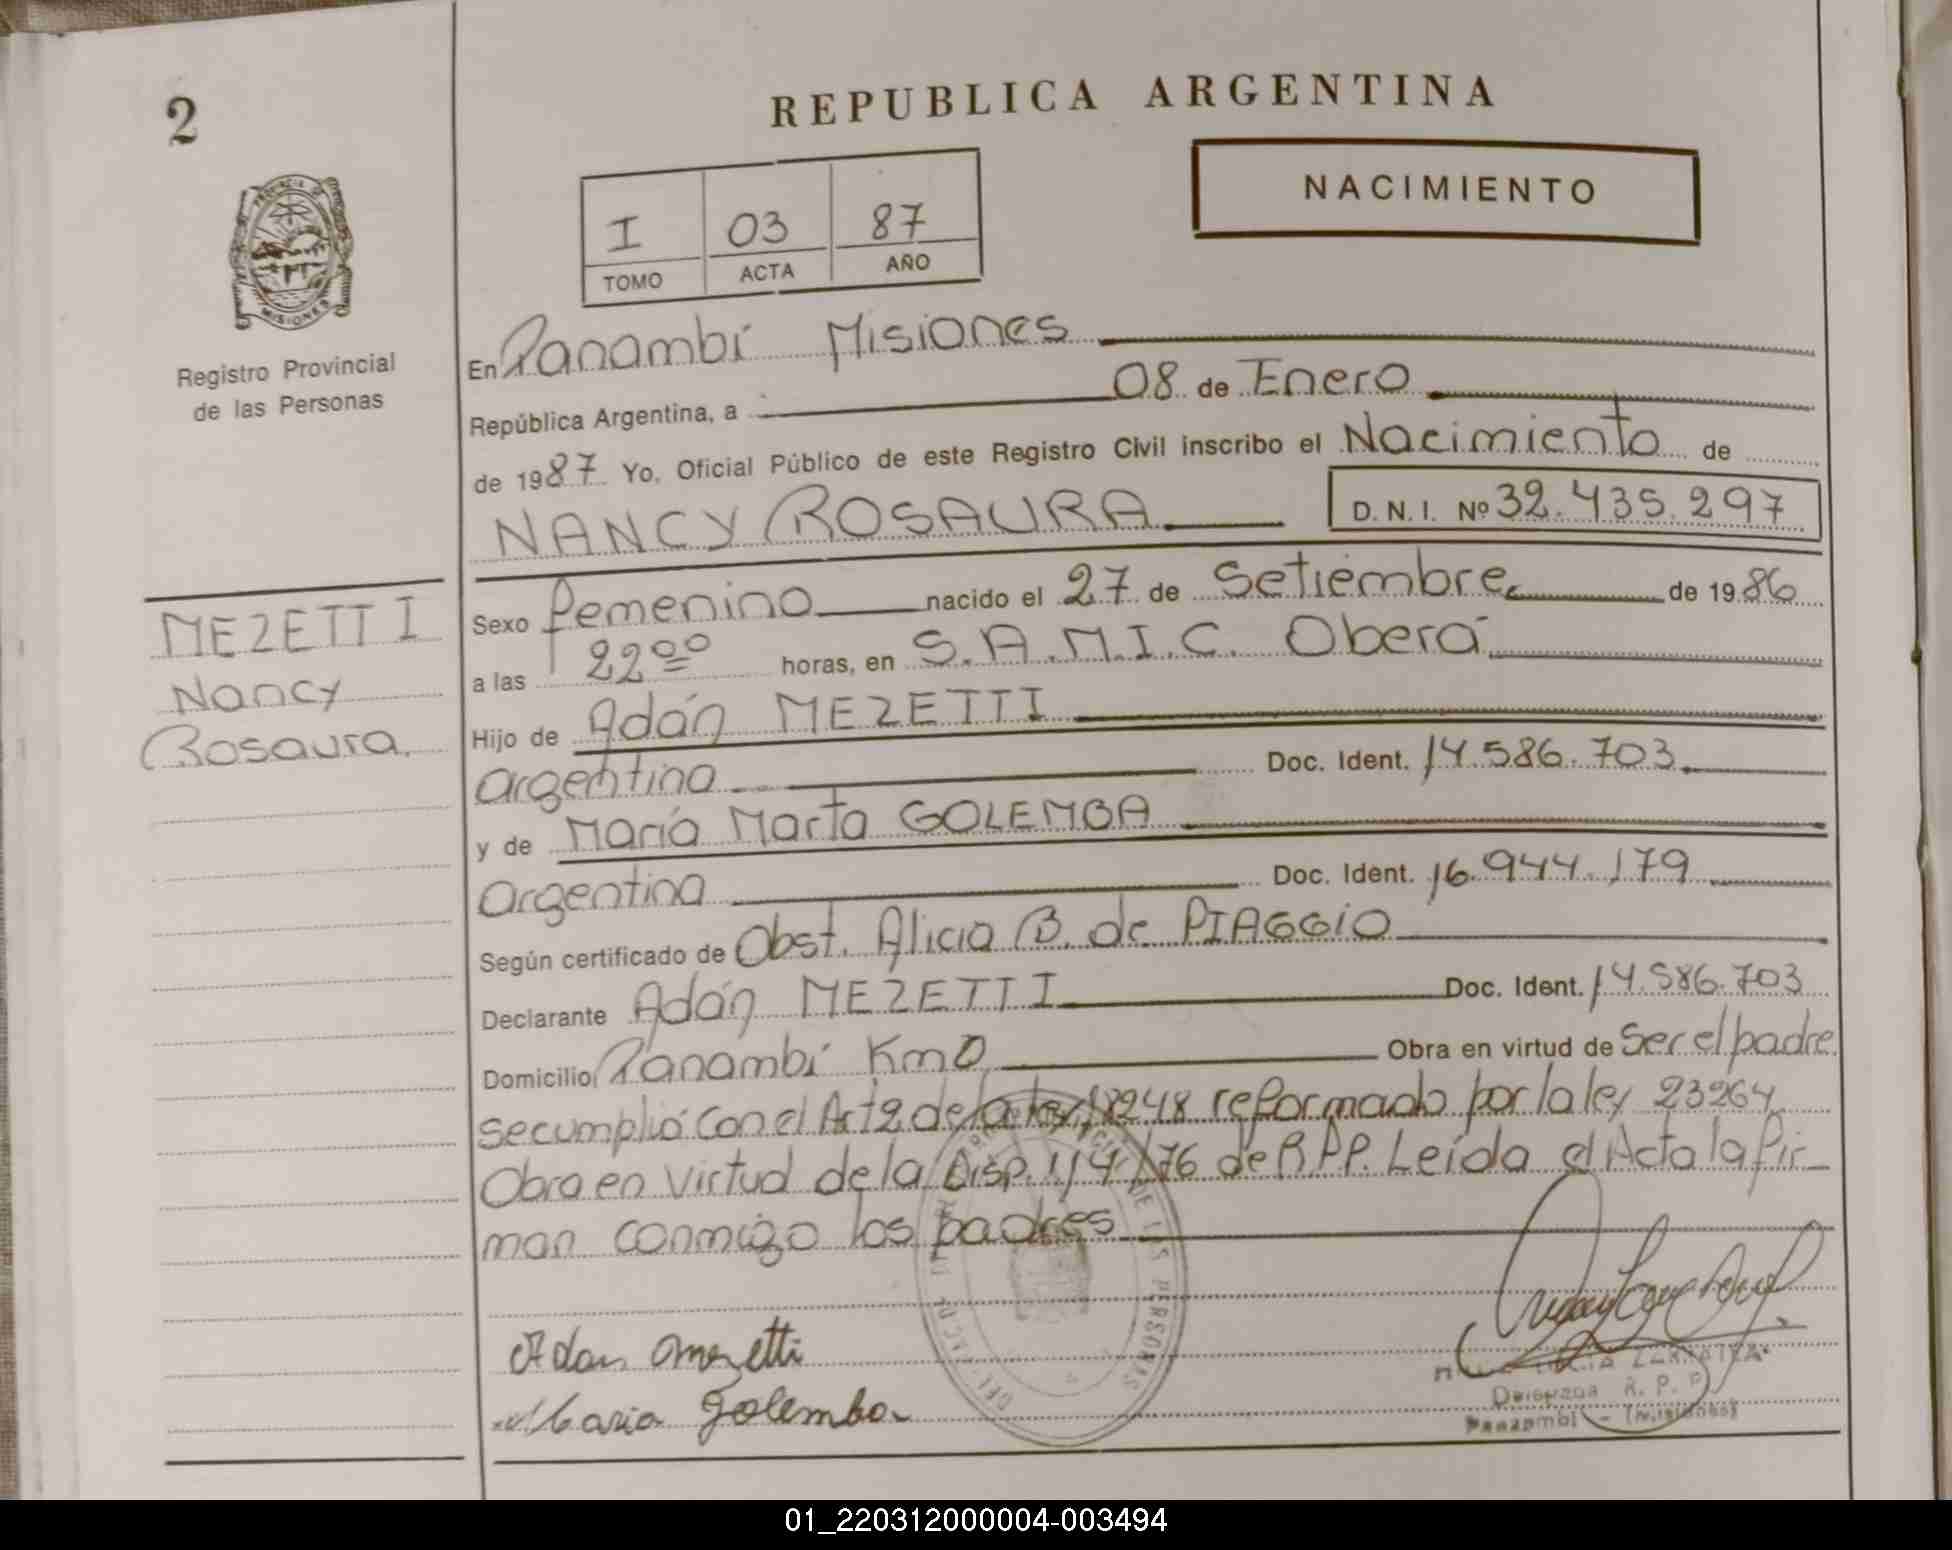 2
REPUBLICA ARGENTINA
NACIMIENTO
I 03 87
TOMO ACTA AÑO
PROVINCIA DE
MISIONES
Registro Provincial
de las Personas
En Panambí Misiones
República Argentina, a 08 de Enero
de 1987 Yo, Oficial Público de este Registro Civil inscribo el Nacimiento de
NANCY ROSAURA D.N.I. Nº 32.435.297
MEZETTI
Nancy
Rosaura.
Sexo femenino nacido el 27 de Setiembre de 1986
a las 22ºº horas, en S.A.M.I.C. Oberá
Hijo de Adán MEZETTI
argentino Doc. Ident. 14.586.703
y de María Marta GOLEMBA
argentina Doc. Ident. 16.944.179
Según certificado de Obst. Alicia B. de PIAGGIO
Declarante Adán MEZETTI Doc. Ident. 14.586.703
Domicilio Panambí Km0 Obra en virtud de Ser el padre
se cumplió con el Art 2 de la ley 18248 reformado por la ley 23264
Obra en virtud de la Disp. 114/76 de R.P.P. Leída el Acta la fir-
man conmigo los padres
Adan Mezetti
Maria Golemba
DE LAS PERSONAS
Delegada R. P. P.
Panambí - (Misiones)
01_220312000004-003494